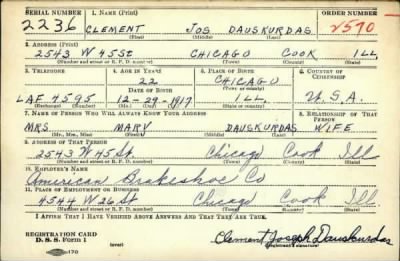 SERIAL NUMBER 1. NAME (Print) ORDER NUMBER
2236 CLEMENT JOS DAUSKURDAS 2570
(First) (Middle) (Last)
2. ADDRESS (Print)
2543 W 45 St CHICAGO COOK ILL
(Number and street or R. F. D. number) (Town) (County) (State)
3. TELEPHONE 4. AGE IN YEARS 5. PLACE OF BIRTH 6. COUNTRY OF CITIZENSHIP
22 CHICAGO
(Town or county)
DATE OF BIRTH
LAF 4595 12-29-1917 ILL. U.S.A.
(Exchange) (Number) (Mo.) (Day) (Yr.) (State or country)
7. NAME OF PERSON WHO WILL ALWAYS KNOW YOUR ADDRESS 8. RELATIONSHIP OF THAT PERSON
MRS MARY DAUSKURDAS WIFE
(Mr., Mrs., Miss) (First) (Middle) (Last)
9. ADDRESS OF THAT PERSON
2543 W 45 St Chicago Cook Ill
(Number and street or R. F. D. number) (Town) (County) (State)
10. EMPLOYER'S NAME
American Brakeshoe Co
11. PLACE OF EMPLOYMENT OR BUSINESS
4544 W 26 St Chicago Cook Ill.
(Number and street or R. F. D. number) (Town) (County) (State)
I AFFIRM THAT I HAVE VERIFIED ABOVE ANSWERS AND THAT THEY ARE TRUE.
REGISTRATION CARD
D. S. S. Form 1 (over) Clement Joseph Dauskurdas
(Registrant's signature)